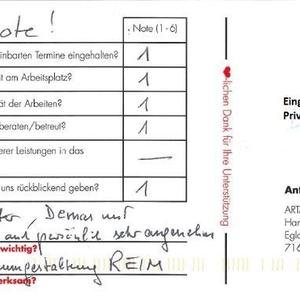 ote!
Note (1 - 6)
einbarten Termine eingehalten? 1
it am Arbeitsplatz? 1
ät der Arbeiten? 1
beraten/betreut? 1
erer Leistungen in das —
uns rückblickend geben? 1
persönlich sehr angenehm
wichtig?
umgestaltung REIM
erksam?
-lichen Dank für Ihre Unterstützung
Eing
Priv
Ant
ARTA
Han
Egla
716